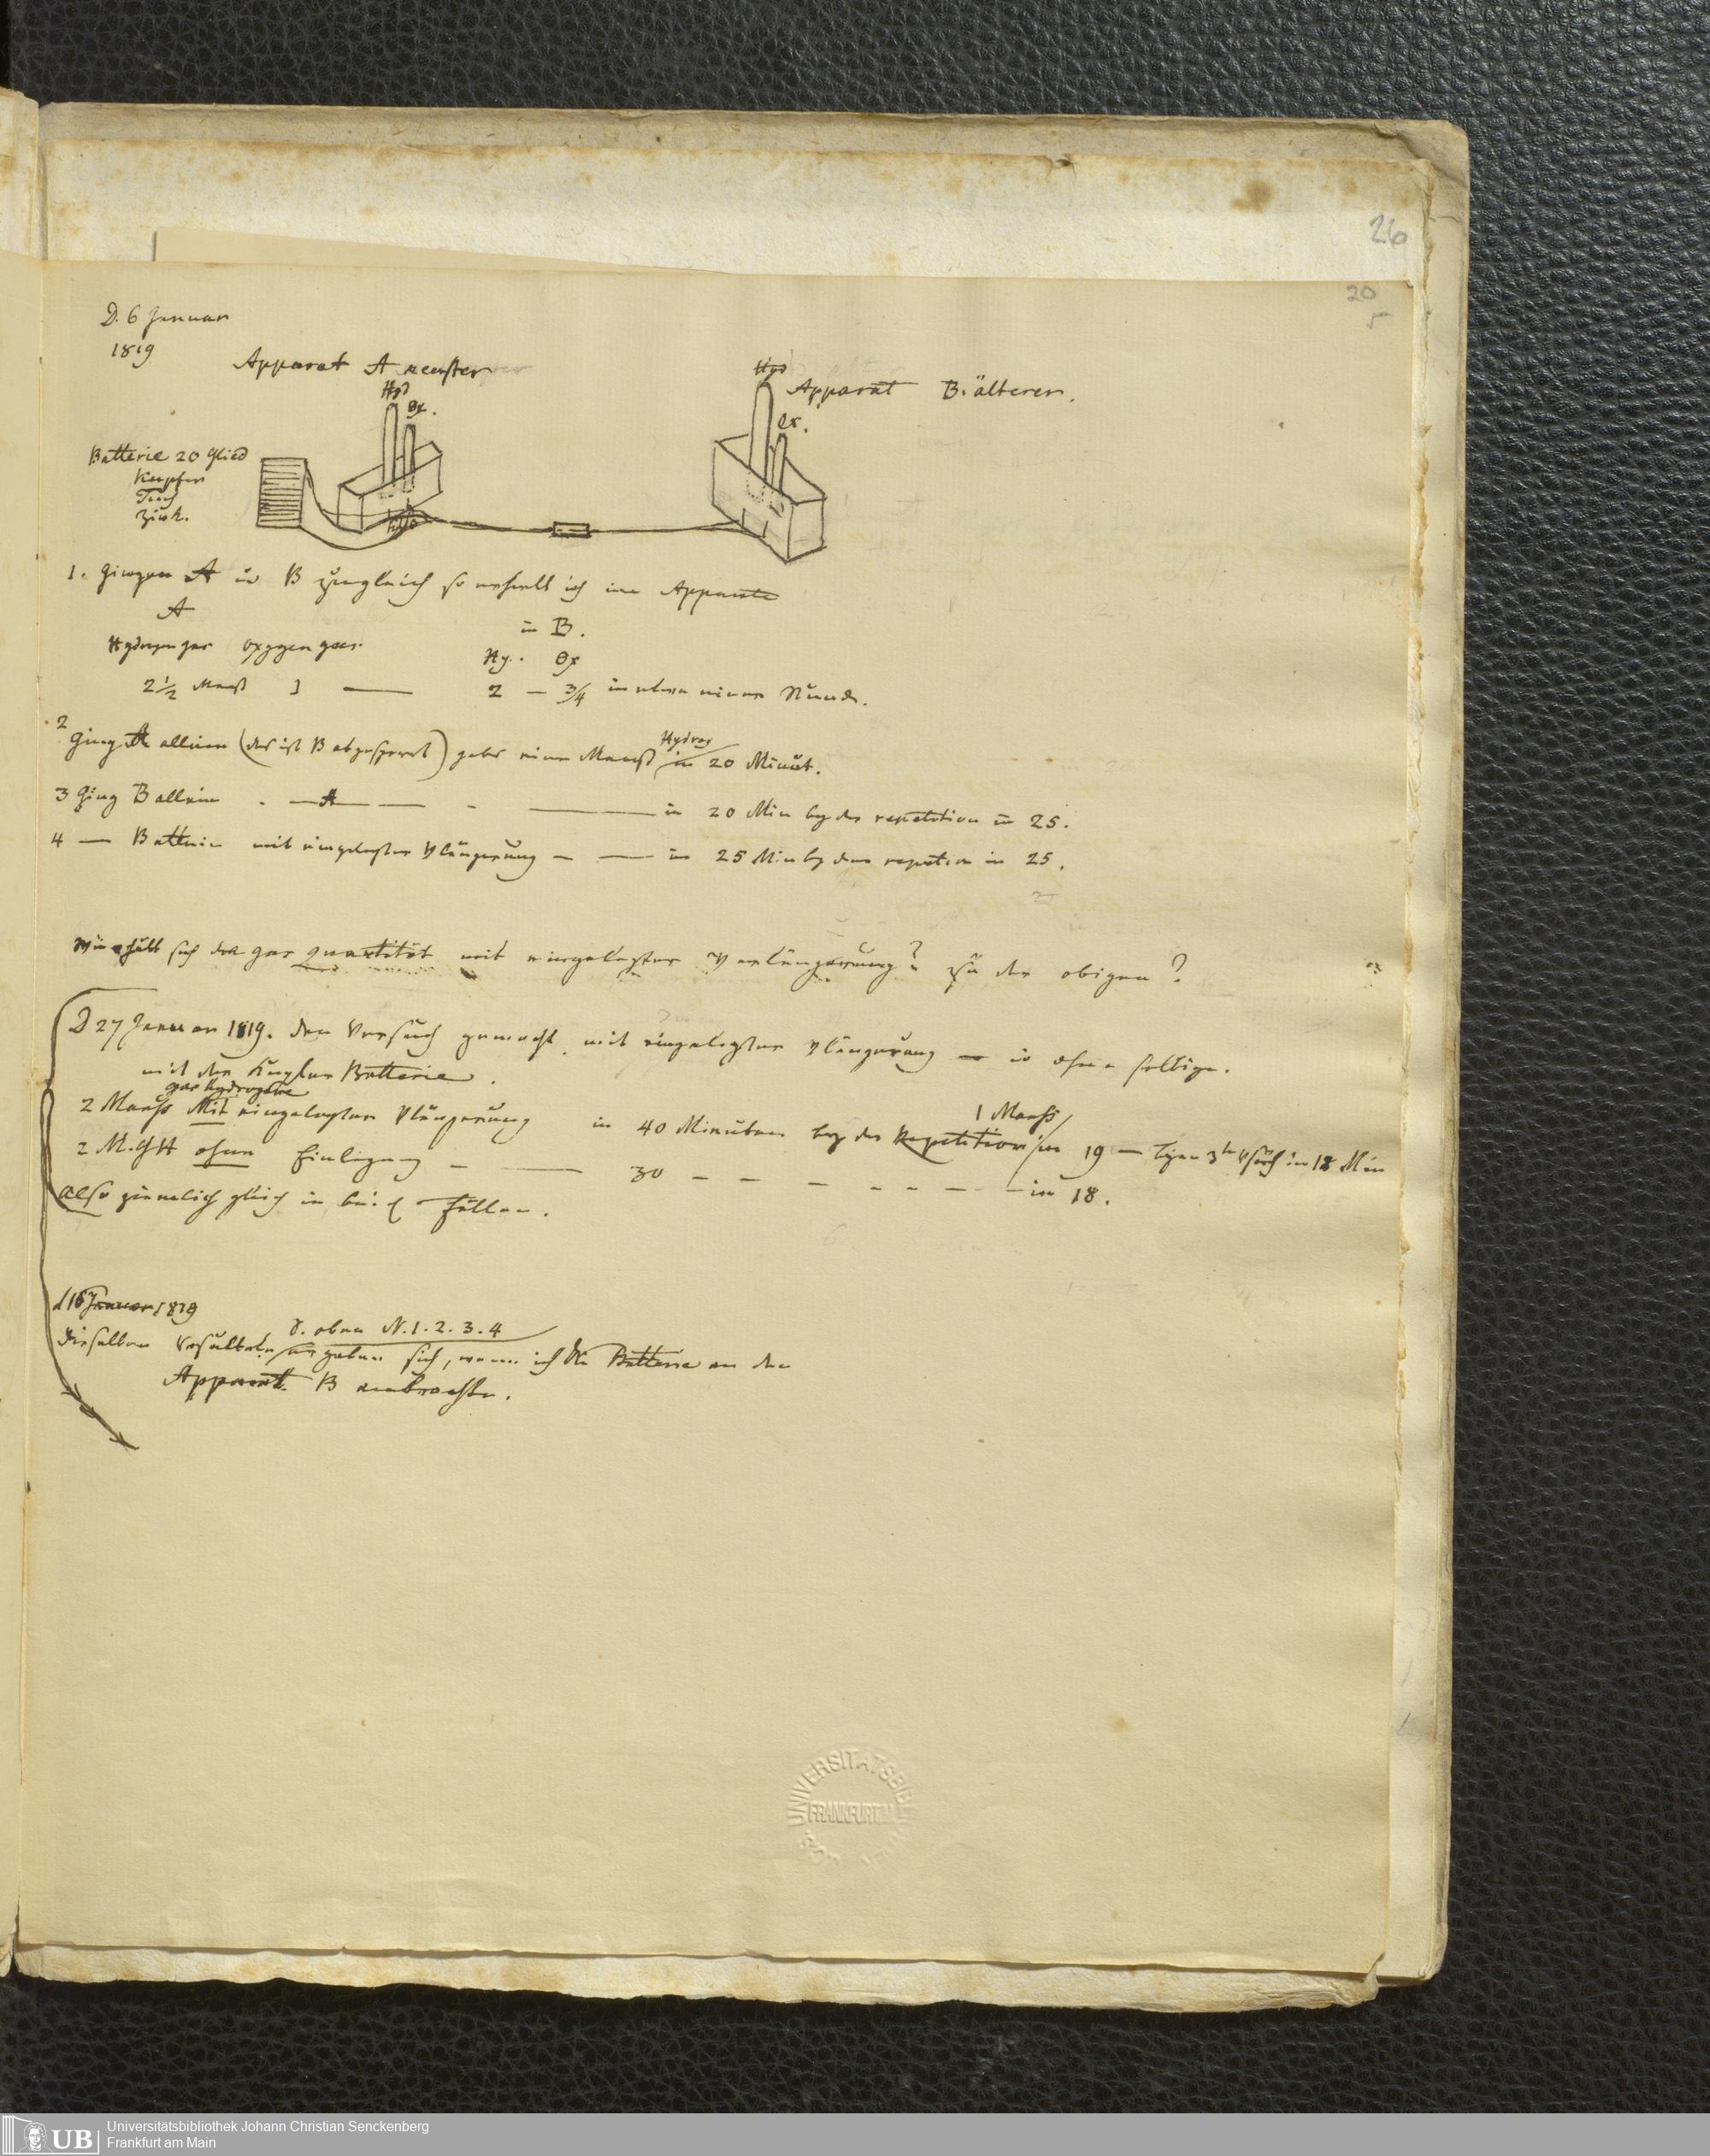 26
20
5
D. 6 Januar
1819
Apparat A neuster
Apparat B. älterer.
Hyd
Ox.
Hyd
Ox.
Batterie 20 Glied
Kupfer
Tuch
Zink.
1. Gingen A u B zugleich so erhielt ich im Apparate
A
in B.
Hydrogen gas oxygen gas.
Hy. Ox
2 1/2 Maass 1 — 2 — 3/4 in etwa einer Stunde.
2 Ging A allein (das ist B abgesperrt) gabs eine Maass Hydrog in 20 Minut.
3 Ging B allein . — A — - — in 20 Min bey der repetition in 25.
4 — B allein mit eingelegter Vlängerung — — in 25 Min by der repetion in 25.
Wie verhält sich die gas quantität mit eingelegter Verlängerung? zu der obigen?
D 27 Januar 1819. den Versuch gemacht mit eingelegter Vlängerung — u ohne selbige.
mit der Kupfer Batterie.
gas hydrogène
2 Maass Mit eingelegter Vlängerung in 40 Minuten bey der Repetition 1 Maass in 19 — bym 3ten Vsuch in 18 Min
2 M. GH ohne Einlegung — — 30 - - - - - - - in 18.
also ziemlich gleich in beid Fällen.
d 16 Januar 1819
Dieselben Resultate S. oben N. 1. 2. 3. 4 ergaben sich, wenn ich die Batterie an den
Apparat B anbrachte.
UNIVERSITÄTSBIBL
FRANKFURT M
UB
Universitätsbibliothek Johann Christian Senckenberg
Frankfurt am Main